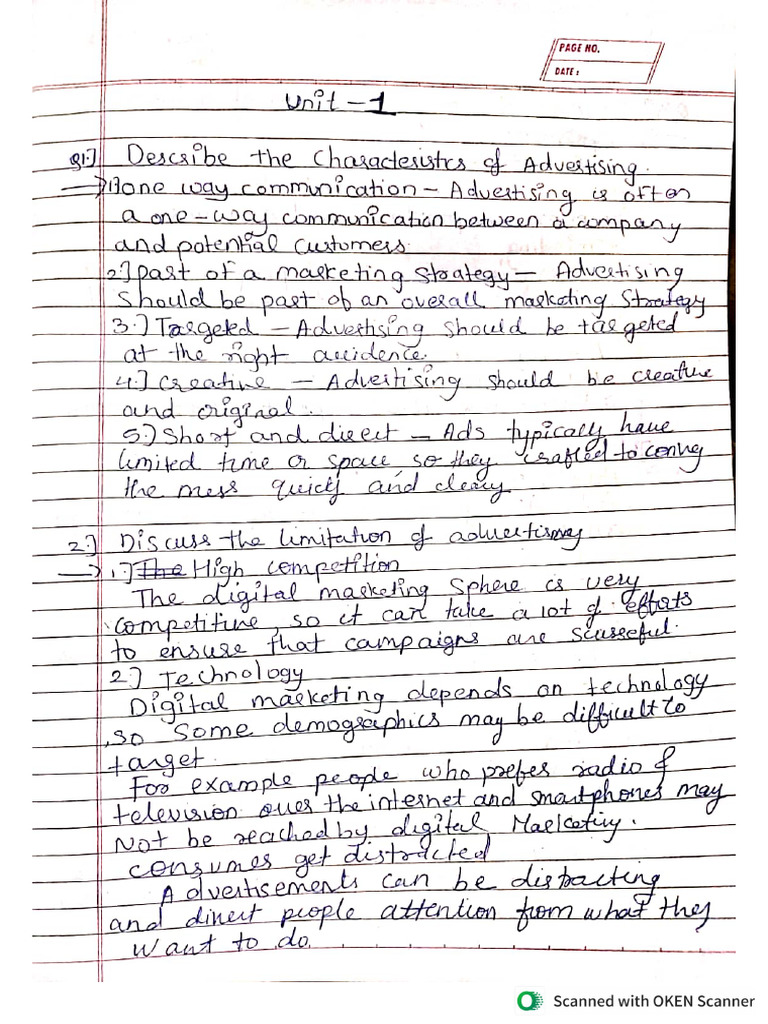 PAGE NO.
DATE :
Unit - 1
Q1.] Describe the Characteristics of Advertising.
→ 1] one way communication - Advertising is often
a one-way communication between a company
and potential customers.
2.] part of a marketing strategy - Advertising
Should be part of an overall marketing strategy
3.] Targeted - Advertising should be targeted
at the right audidence.
4.] creative - Advertising should be creative
and original.
5.] Short and direct - Ads typically have
limited time or space, so they crafted to convey
the mess quickly and clearly
2.] Discuss the limitation of advertising
→ 1.] The High competition
The digital marketing sphere is very
competitive, so it can take a lot of efforts
to ensure that campaigns are
2.] Technology
Digital marketing depends on technology
, so some demographics may be difficult to
target.
For example people who prefer radio &
television over the internet and smartphones may
Not be reached by digital Marketing.
consumes get distracted
Advertisements can be distracting
and divert people attention from what they
want to do.
Scanned with OKEN Scanner